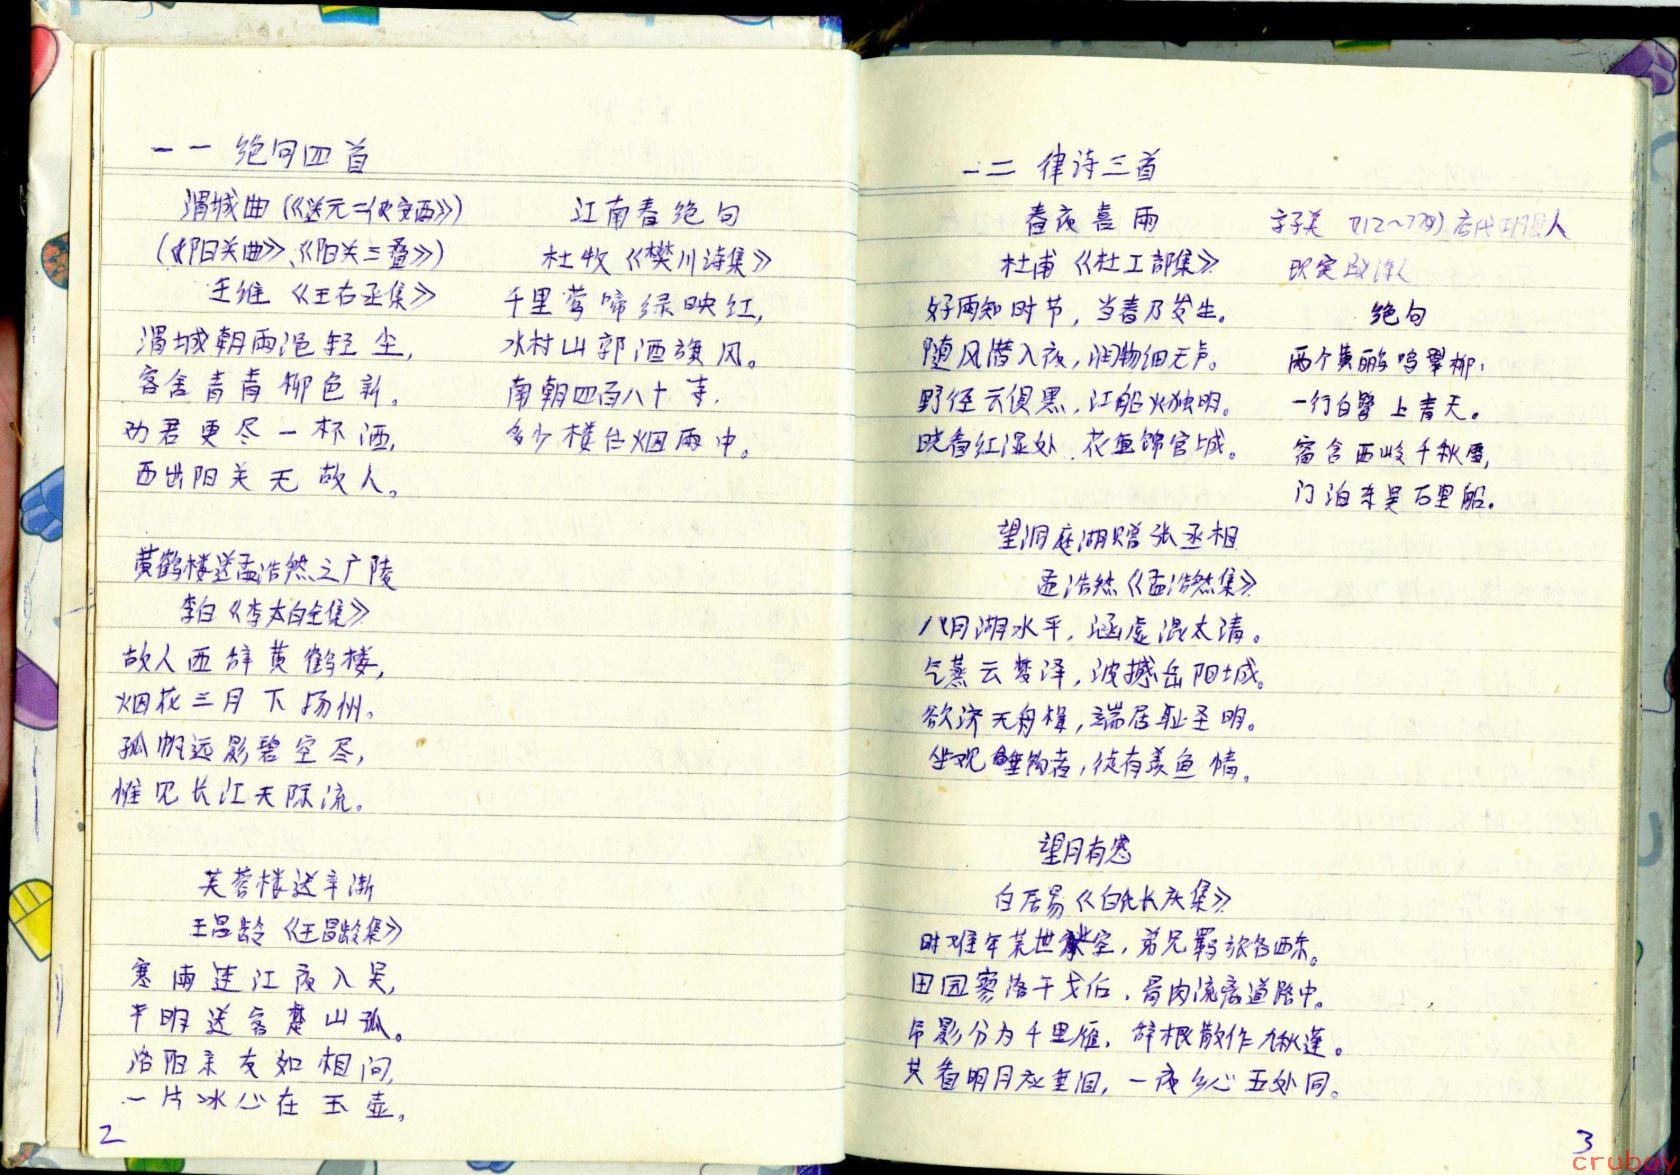 一一 绝句四首
渭城曲(《送元二使安西》)
(《阳关曲》、《阳关三叠》)
王维 《王右丞集》
渭城朝雨浥轻尘,
客舍青青柳色新。
劝君更尽一杯酒,
西出阳关无故人。
江南春绝句
杜牧《樊川诗集》
千里莺啼绿映红,
水村山郭酒旗风。
南朝四百八十寺,
多少楼台烟雨中。
黄鹤楼送孟浩然之广陵
李白《李太白全集》
故人西辞黄鹤楼,
烟花三月下扬州。
孤帆远影碧空尽,
惟见长江天际流。
芙蓉楼送辛渐
王昌龄《王昌龄集》
寒雨连江夜入吴,
平明送客楚山孤。
洛阳亲友如相问,
一片冰心在玉壶。
2
一二 律诗三首
春夜喜雨
杜甫《杜工部集》
好雨知时节,当春乃发生。
随风潜入夜,润物细无声。
野径云俱黑,江船火独明。
晓看红湿处,花重锦官城。
字子美 712~770) 唐代巩县人
现实
绝句
两个黄鹂鸣翠柳,
一行白鹭上青天。
窗含西岭千秋雪,
门泊东吴万里船。
望洞庭湖赠张丞相
孟浩然《孟浩然集》
八月湖水平,涵虚混太清。
气蒸云梦泽,波撼岳阳城。
欲济无舟楫,端居耻圣明。
坐观垂钓者,徒有羡鱼情。
望月有感
白居易《白氏长庆集》
时难年荒世业空,弟兄羁旅各西东。
田园寥落干戈后,骨肉流离道路中。
吊影分为千里雁,辞根散作九秋蓬。
共看明月应垂泪,一夜乡心五处同。
3
crubuy